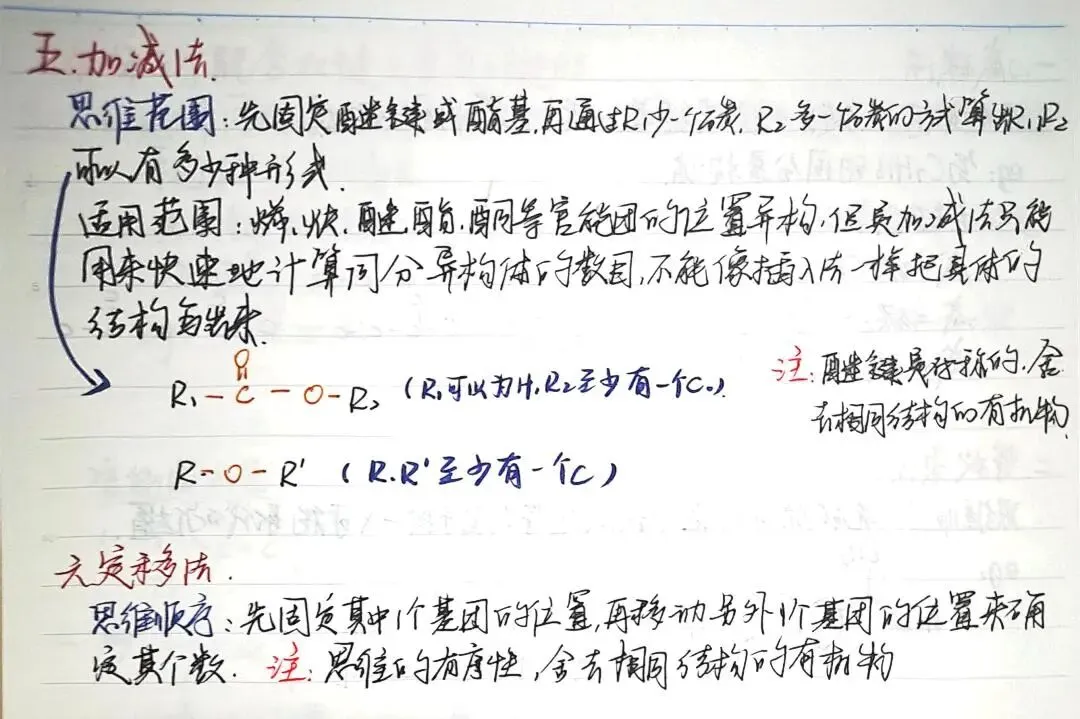 五.加减法.
思维范围:先固定醚键或酯基,再通过R₁少一个碳,R₂多一个碳的方式算出R₁,R₂
可以有多少种形式.
适用范围:烯、炔、醚、酯、酮等官能团的位置异构,但是加减法只能
用来快速地计算同分异构体的数目,不能像插入法一样把具体的
结构写出来.
O
R₁-C-O-R₂ (R₁可以为H,R₂至少有一个C.)
注:醚键是对称的,舍
去相同结构的有机物.
R-O-R' (R.R'至少有一个C)
六定移法.
思维顺序:先固定其中1个基团的位置,再移动另外1个基团的位置来确
定其个数. 注:思维的有序性,舍去相同结构的有机物